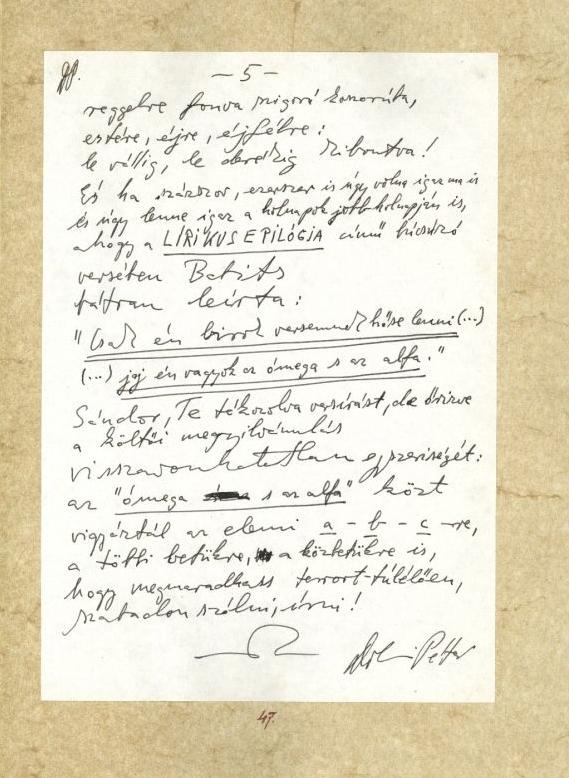 DP.
– 5 –
reggelre fonva szigorú koszorúba,
estére, éjre, éjfélre:
le vállig, le derékig kibontva!
És ha százszor, ezerszer is úgy volna igaz ma is
és úgy lenne igaz a holnapok jobb holnapján is,
ahogy a LÍRIKUS EPILÓGJA című búcsúzó
versében Babits
bátran leírta:
"Csak én birok versemnek hőse lenni (...)
(...) jaj én vagyok az ómega s az alfa."
Sándor, Te tékozolva versírást, de őrizve
a költői megnyilvánulás
visszavonhatatlan egyszeriségét:
az "ómega s az alfa" közt
vigyáztál az elemi a – b – c –re,
a többi betűkre, a köztetükre is,
hogy megmaradhass terrort-túlélően,
szabadon szólni, írni!
47.